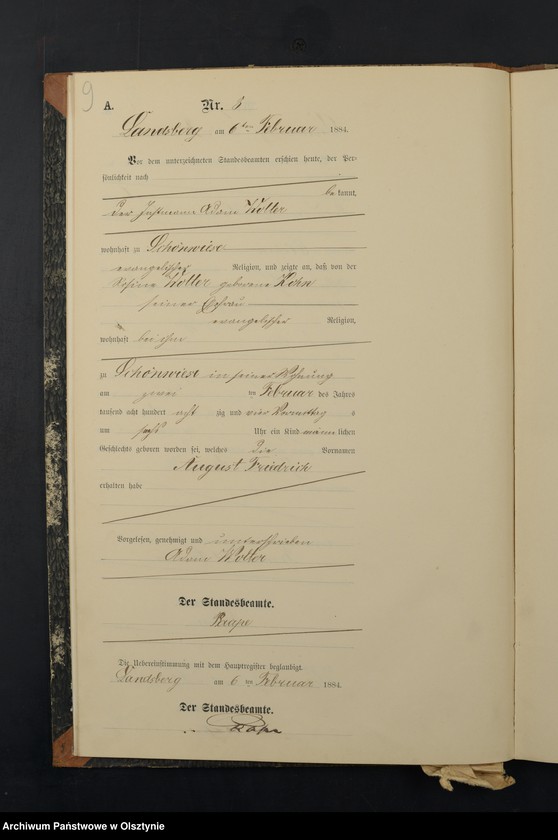 9
A.
Nr. 6
Landsberg am 6ten Februar 1884.
Vor dem unterzeichneten Standesbeamten erschien heute, der Per-
sönlichkeit nach
bekannt,
der Instmann Adam Wolter
wohnhaft zu Schönwiese
evangelischer Religion, und zeigte an, daß von der
Rosine Wolter geborene Hohn
seiner Ehefrau
evangelischer Religion,
wohnhaft bei ihm
zu Schönwiese in seiner Wohnung
am zwei ten Februar des Jahres
tausend acht hundert acht zig und vier Vormittag s
um sechs Uhr ein Kind männlichen
Geschlechts geboren worden sei, welches die Vornamen
August Friedrich
erhalten habe
Vorgelesen, genehmigt und unterschrieben
Adam Wolter
Der Standesbeamte.
Die Uebereinstimmung mit dem Hauptregister beglaubigt.
Landsberg am 6 ten Februar 1884.
Der Standesbeamte.
Archiwum Państwowe w Olsztynie